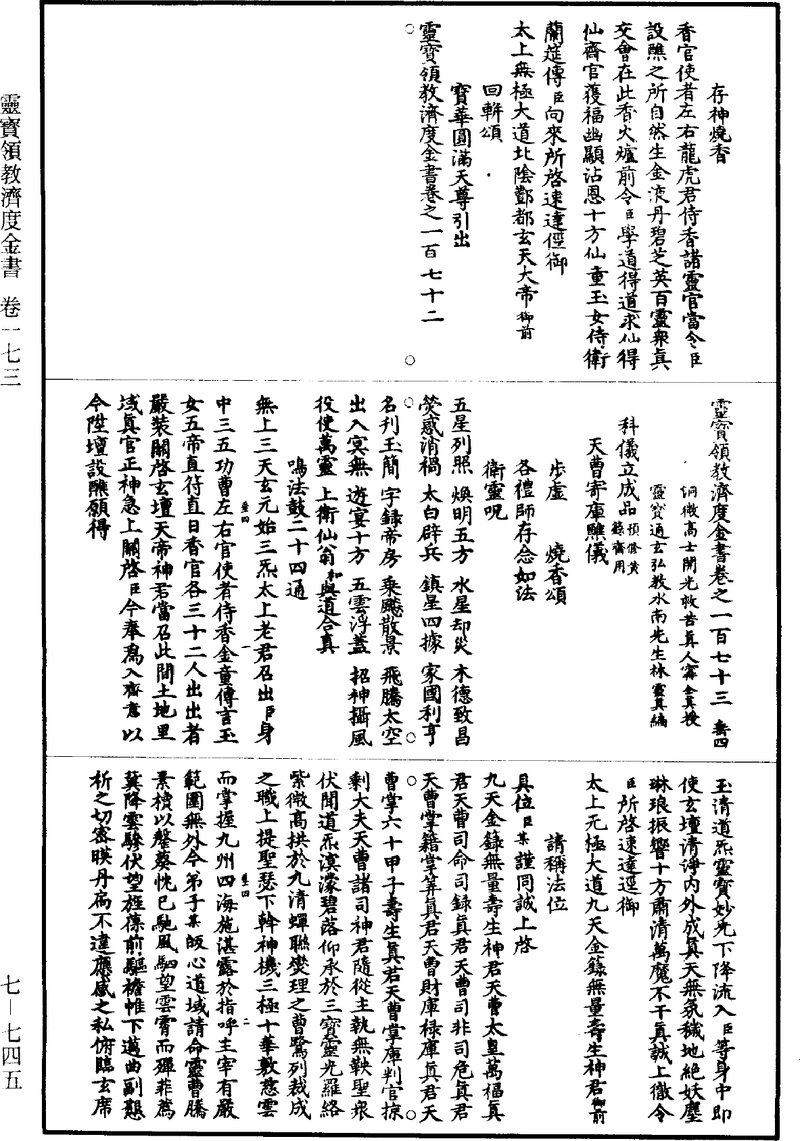 靈寶領教濟度金書 卷一七三
七—七四五
存神燒香
香官使者左右龍虎君侍香諸靈官當令臣
設醮之所自然生金液丹碧芝英百靈衆真
交會在此香火爐前令臣學道得道求仙得
仙齋官獲福幽顯沾恩十方仙童玉女侍衛
蘭筵傳臣向來所啓速達徑御
太上無極大道北陰酆都玄天大帝御前
回軿頌
寶華圓滿天尊引出
靈寶領教濟度金書卷之一百七十二
靈寶領教濟度金書卷之一百七十三
洞微高士開光救苦真人甯全真授
靈寶通玄弘教水南先生林靈真編
科儀立成品預修黃籙齋用
天曹寄庫醮儀
步虛 燒香頌
各禮師存念如法
衛靈呪
五星列照 煥明五方 水星却災 木德致昌
熒惑消禍 太白辟兵 鎮星四據 家國利亨
名刊玉簡 字錄帝房 乘飈散景 飛騰太空
出入冥無 遊宴十方 五雲浮蓋 招神攝風
役使萬靈 上衛仙翁 和與道合真
鳴法鼓二十四通
無上三天玄元始三炁太上老君召出臣身
中三五功曹左右官使者侍香金童傳言玉
女五帝直符直日香官各三十二人出出者
嚴裝關啓玄壇天帝神君當召此間土地里
域真官正神急上關啓臣今奉爲入齋意以
今陞壇設醮願得
玉清道炁靈寶妙光下降流入臣等身中即
使玄壇清淨內外成真天無氛穢地絕妖塵
琳琅振響十方肅清萬魔不干真誠上徹令
臣所啓速達逕御
太上无極大道九天金籙無量壽生神君御前
請稱法位
具位臣某謹同誠上啓
九天金籙無量壽生神君天曹太皇萬福真
君天曹司命司錄真君天曹司非司危真君
天曹掌籍掌筭真君天曹財庫祿庫真君天
曹掌六十甲子壽生真君天曹掌庫判官掠
剩大夫天曹諸司神君隨從主執無鞅聖衆
伏聞道炁溟濛碧落仰承於三寶靈光羅絡
紫微高拱於九清蟬聯燮理之曹鷺列裁成
之職上提聖瑟下幹神機三極十華敷慈雲
而掌握九州四海施湛露於指呼主宰有嚴
範圍無外今弟子某皈心道域請命靈曹騰
素樻以罄葵忱已馳風馹望雲霄而殫菲薦
冀降雲驂伏望旌葆前驅襜帷下邁曲副懇
祈之切密映丹扃不違應感之私俯臨玄席